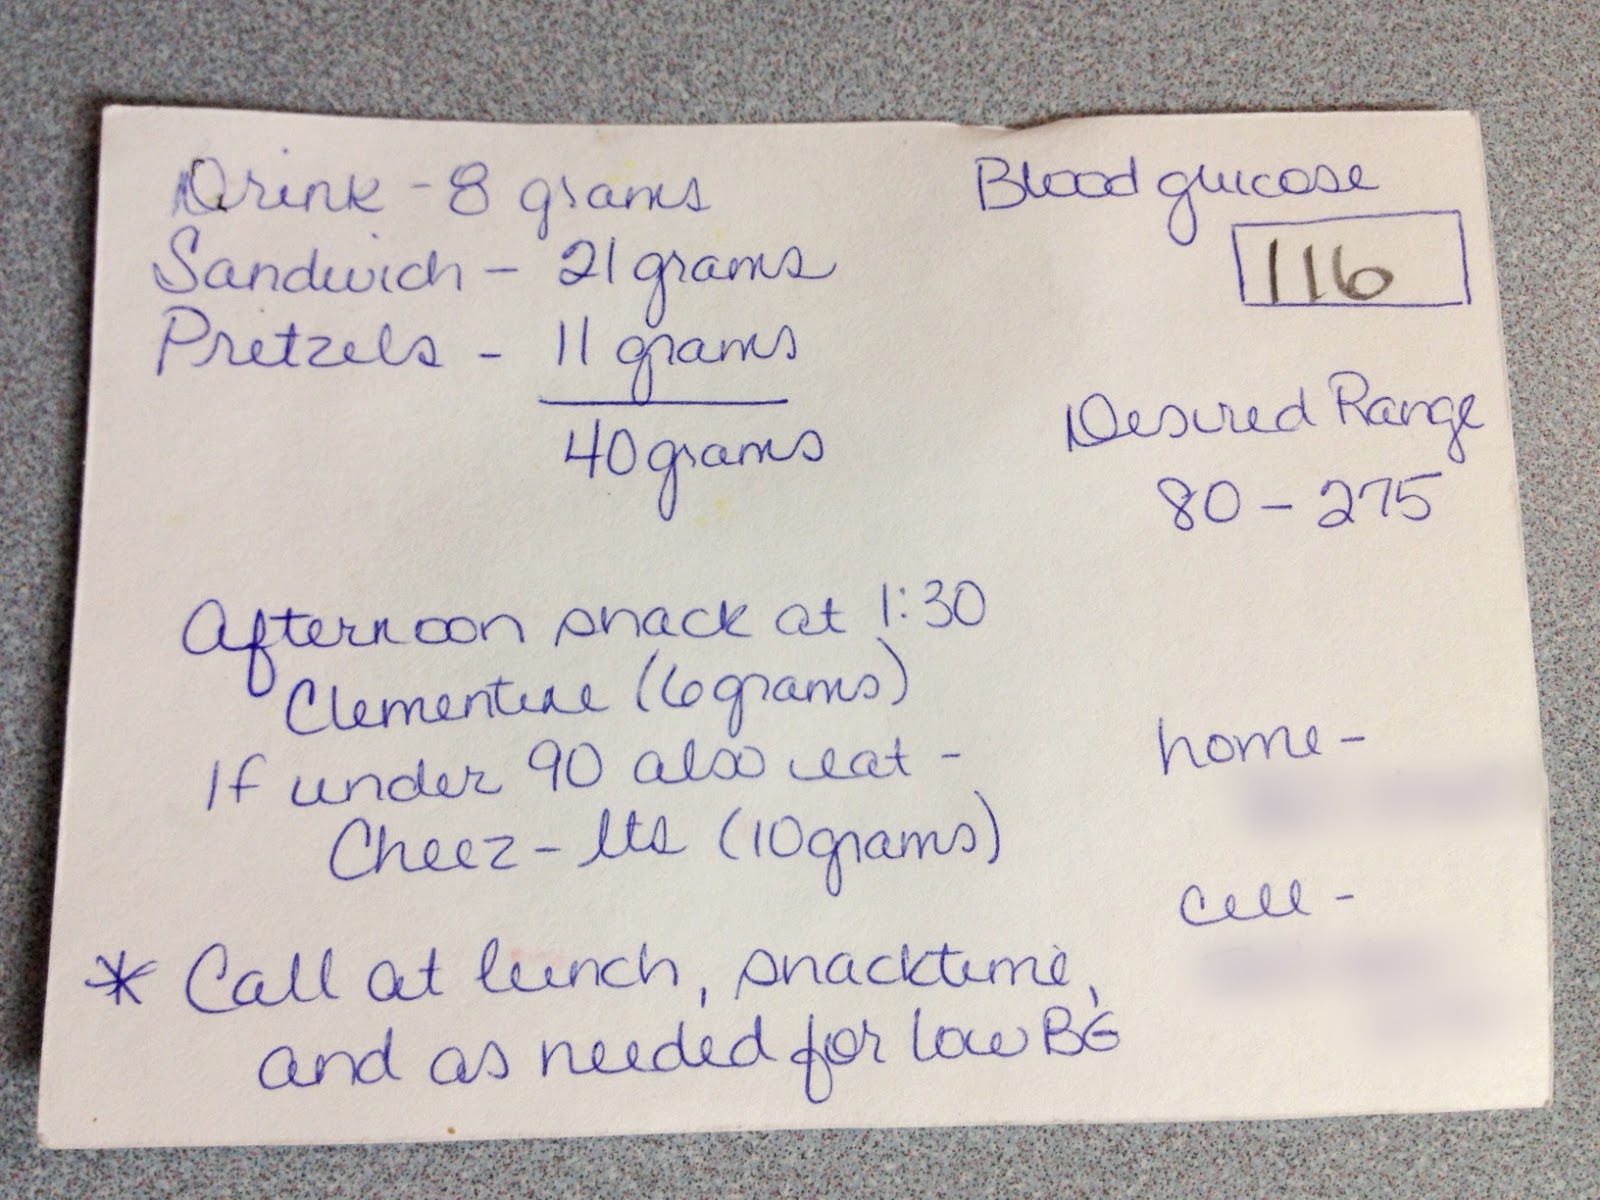 Drink - 8 grams
Sandwich - 21 grams
Pretzels - 11 grams
40 grams
Blood glucose
116
Desired Range
80 - 275
Afternoon snack at 1:30
Clementine (6 grams)
If under 90 also eat -
Cheez-Its (10 grams)
home -
cell -
* Call at lunch, snacktime,
and as needed for low BG